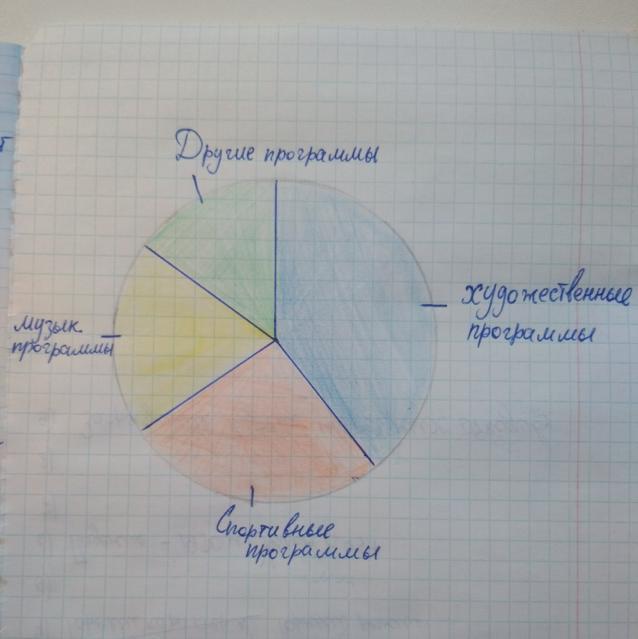 Другие программы
художественные
программы
музык.
программы
Спортивные
программы